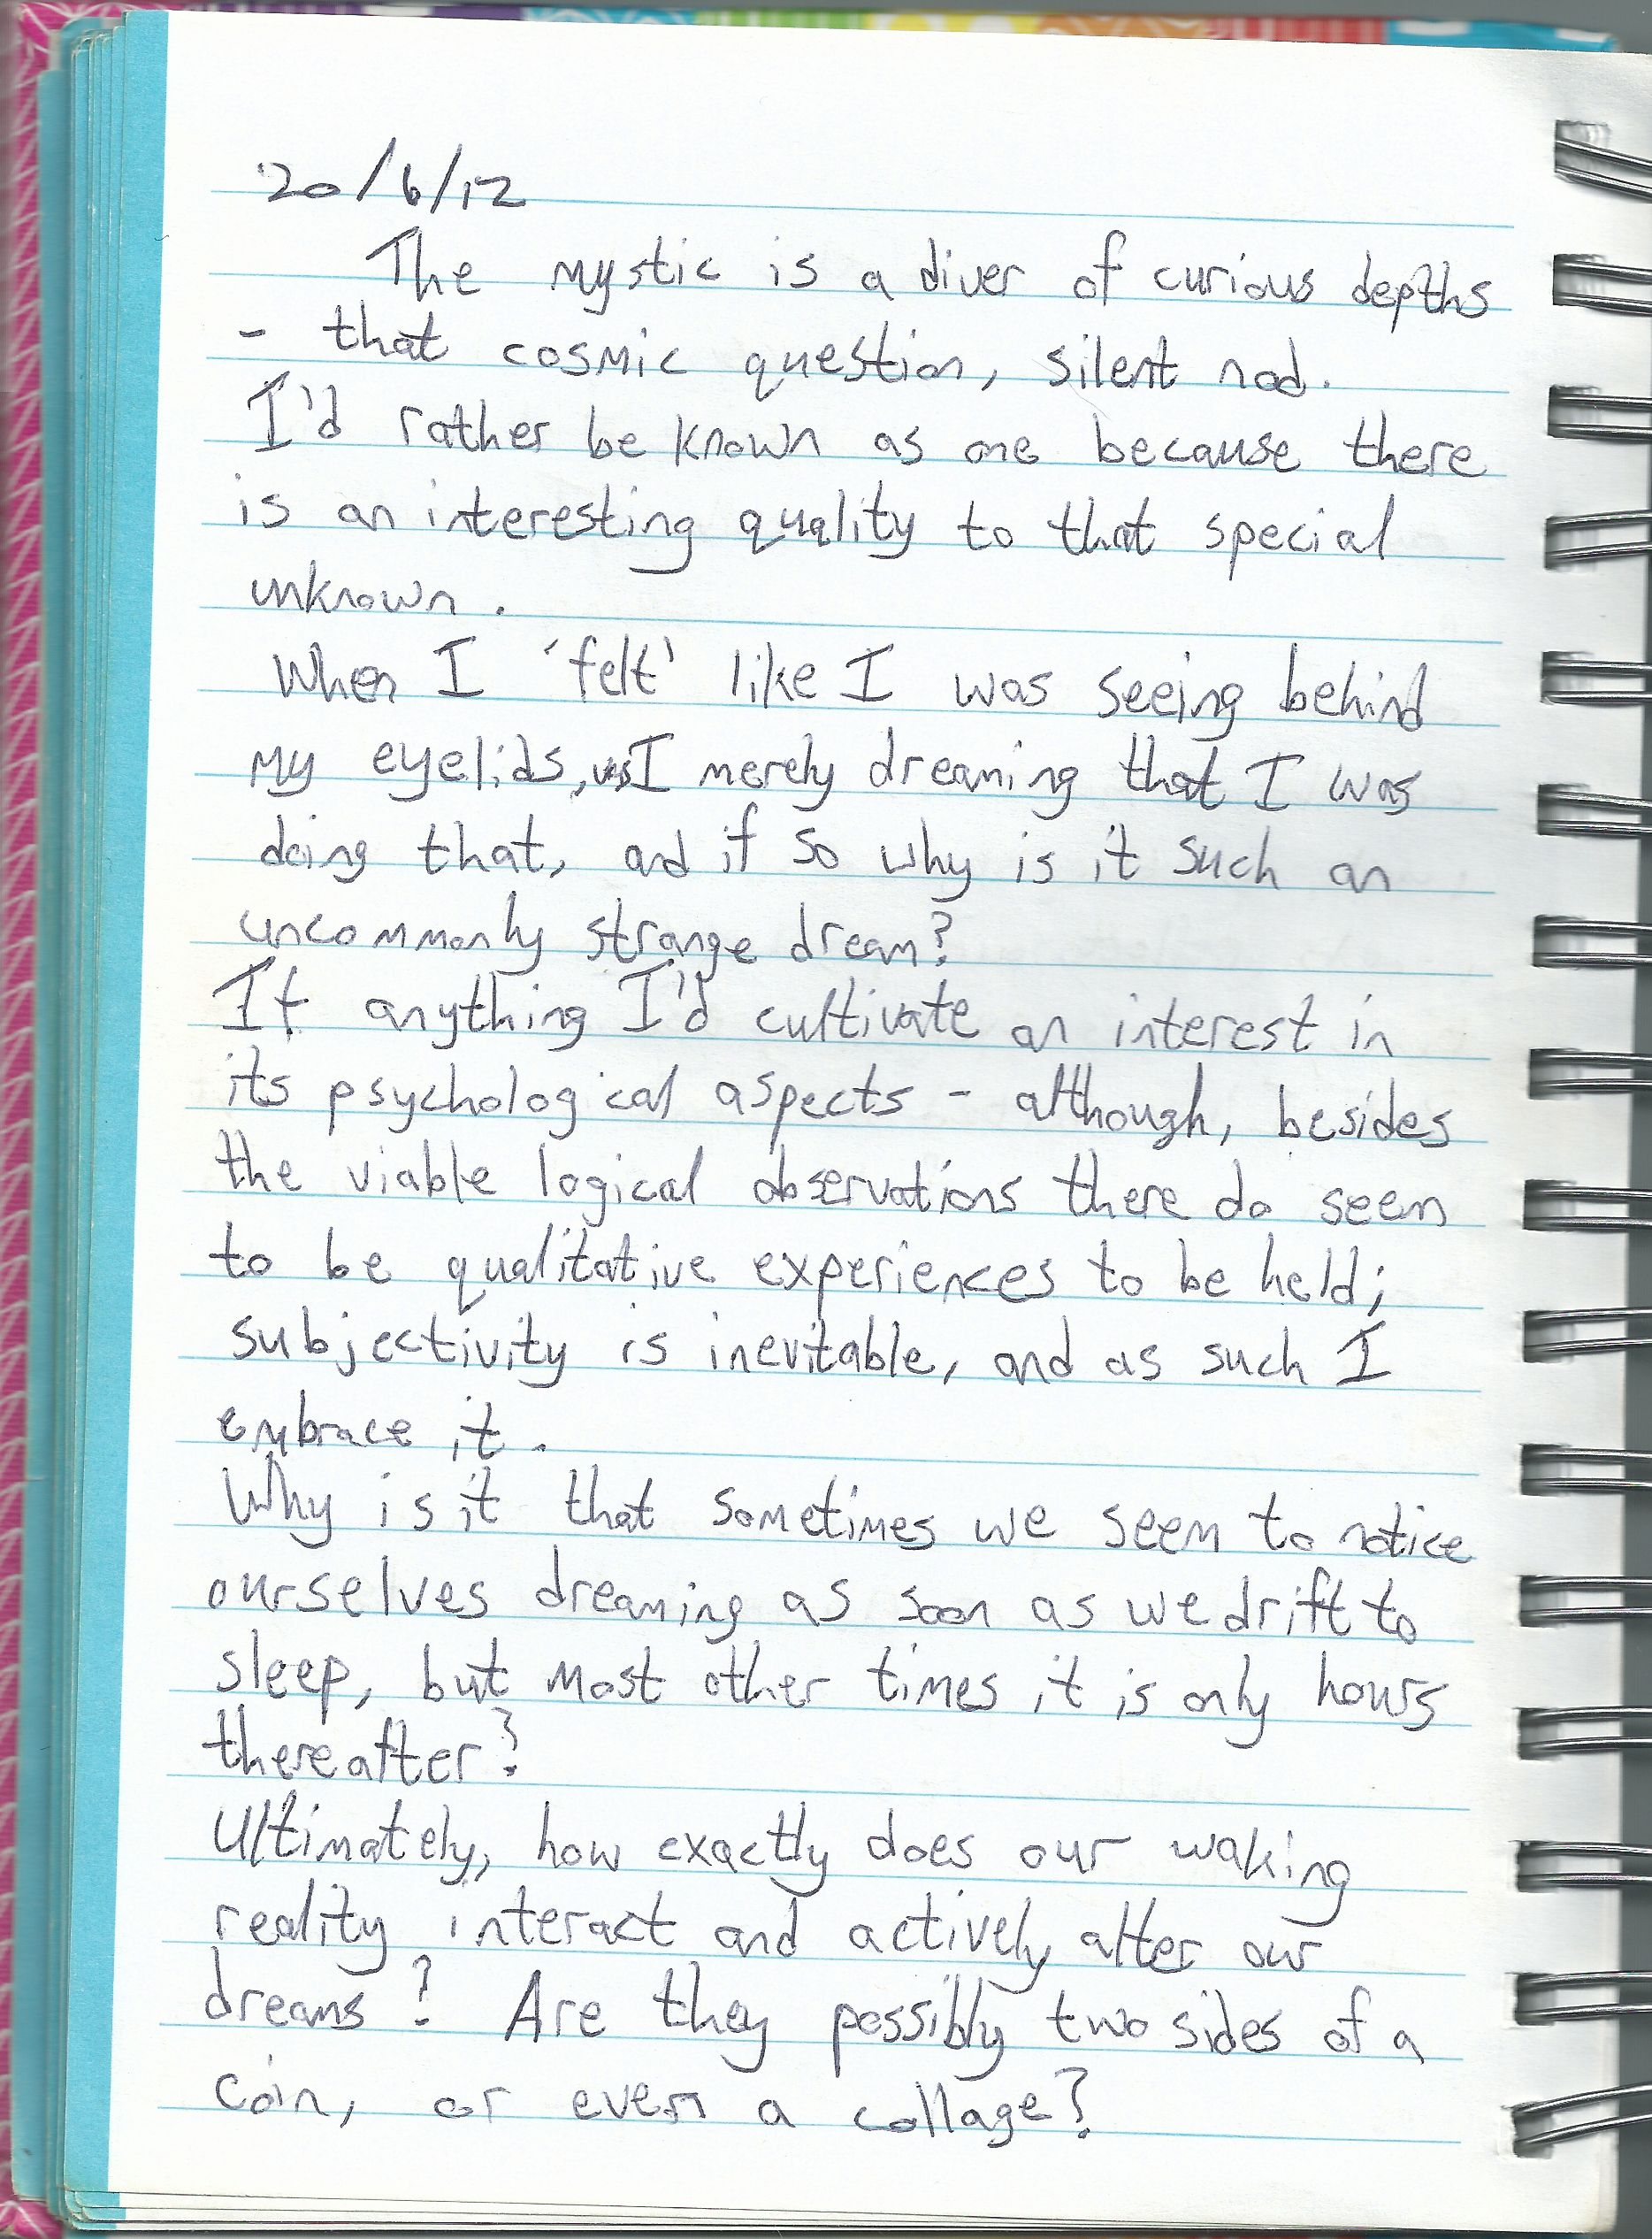 20/6/12
The mystic is a diver of curious depths
- that cosmic question, silent nod.
I'd rather be known as one because there
is an interesting quality to that special
unknown.
When I 'felt' like I was seeing behind
my eyelids, was I merely dreaming that I was
doing that, and if so why is it such an
uncommonly strange dream?
If anything I'd cultivate an interest in
its psychological aspects - although, besides
the viable logical observations there do seem
to be qualitative experiences to be held;
subjectivity is inevitable, and as such I
embrace it.
Why is it that sometimes we seem to notice
ourselves dreaming as soon as we drift to
sleep, but most other times it is only hours
thereafter?
Ultimately, how exactly does our waking
reality interact and actively alter our
dreams? Are they possibly two sides of a
coin, or even a collage?